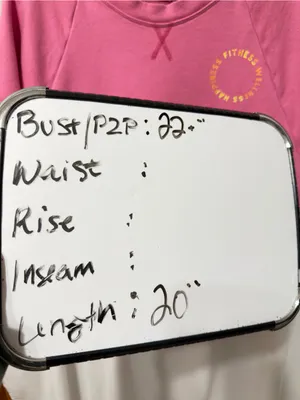 FITNESS WELLNESS HAPPINESS
Bust/P2P : 22."
Waist :
Rise :
Inseam :
Length : 20"